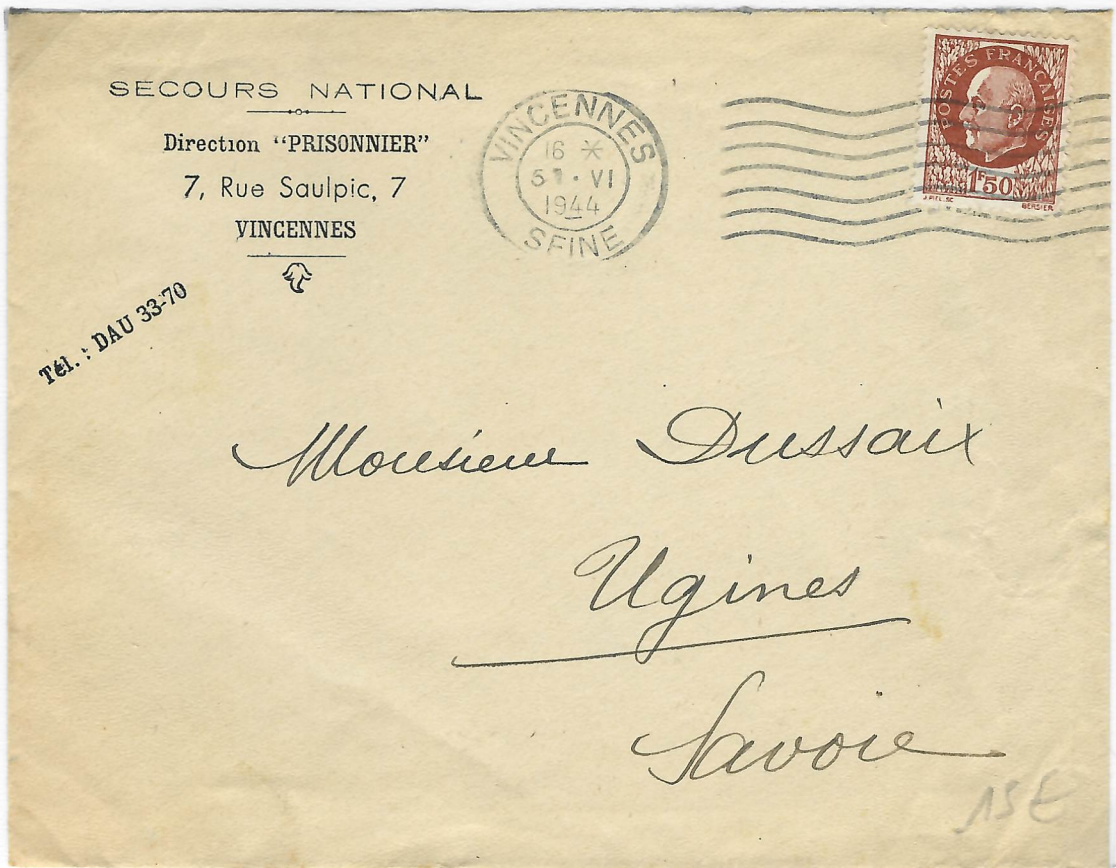 SECOURS NATIONAL
Direction "PRISONNIER"
7, Rue Saulpic, 7
VINCENNES
Tél. : DAU 33-70
VINCENNES
16 *
VI
1944
SEINE
POSTES FRANÇAISES
1F50
J.PIEL.SC BERSIER
Monsieur Dussaix
Ugines
Savoie
15 €